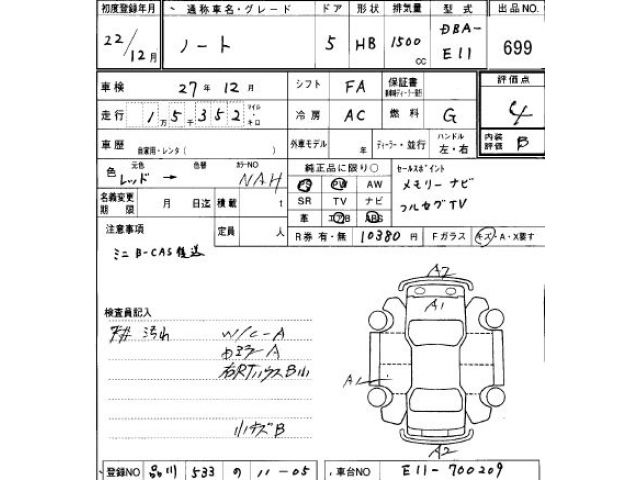 初度登録年月 通称車名・グレード ドア 形状 排気量 型式 出品NO
22/12月 ノート 5 HB 1500cc DBA-E11 699
車検 27年 12月 シフト FA 保証書 評価点
走行 1万5千352 マイル・キロ 冷房 AC 燃料 G 4
車歴 自家用・レンタ( ) 外車モデル 年 ディーラー・並行 ハンドル 左・右 内装評価 B
色 元色 レッド → 色替 カラーNO NAH 純正品に限り○ セールスポイント
PS PW AW メモリーナビ
名義変更期限 月 日迄 積載 t SR TV ナビ フルセグTV
革 エアB ABS
注意事項 定員 人 R券 有・無 10380円 Fガラス キズ・A・X要す
ミニB-CAS後送
検査員記入 A2
汚れ W/C-A A1
ドミラーA
右RTハウスB小 A
小キズB
A2
登録NO 品川 533 の 11-05 車台NO E11-700209